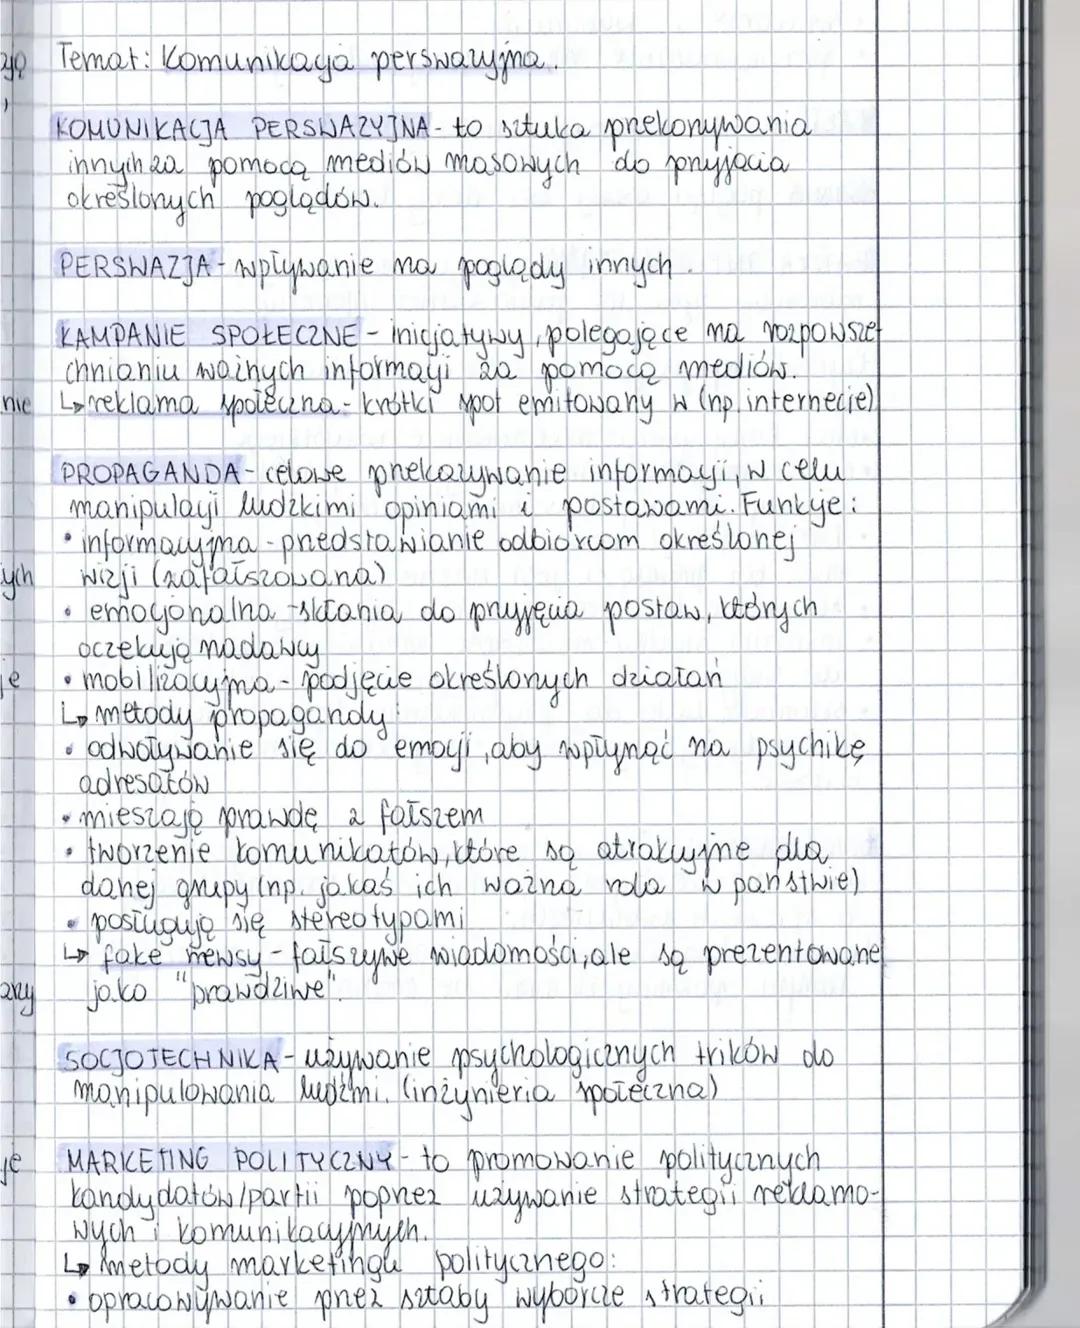 Temat: Komunikacja perswazyjna.
KOMUNIKACJA PERSWAZYJNA - to sztuka przekonywania
innych za pomocą mediów masowych do przyjęcia
określonych poglądów.
PERSWAZJA - wpływanie na poglądy innych.
KAMPANIE SPOŁECZNE - inicjatywy, polegające na rozpowsze-
chnianiu ważnych informacji za pomocą mediów.
nie
↳ reklama społeczna - krótki spot emitowany w (np. internecie)
PROPAGANDA - celowe przekazywanie informacji, w celu
manipulacji ludzkimi opiniami i postawami. Funkcje:
• informacyjna - przedstawianie odbiorcom określonej
ych
wizji (zafałszowana)
• emocjonalna - skłania do przyjęcia postaw, których
oczekują nadawcy
je
• mobilizacyjna - podjęcie określonych działań
↳ metody propagandy:
• odwoływanie się do emocji, aby wpłynąć na psychikę
adresatów
• mieszają prawdę z fałszem
• tworzenie komunikatów, które są atrakcyjne dla
danej grupy (np. jakaś ich ważna rola w państwie)
• posługują się stereotypami
↳ fake newsy - fałszywe wiadomości, ale są prezentowane
jako "prawdziwe".
SOCJOTECHNIKA - używanie psychologicznych trików do
manipulowania ludźmi. (inżynieria społeczna)
je
MARKETING POLITYCZNY - to promowanie politycznych
kandydatów/partii poprzez używanie strategii reklamo-
wych i komunikacyjnych.
↳ metody marketingu politycznego:
• opracowywanie przez sztaby wyborcze strategii